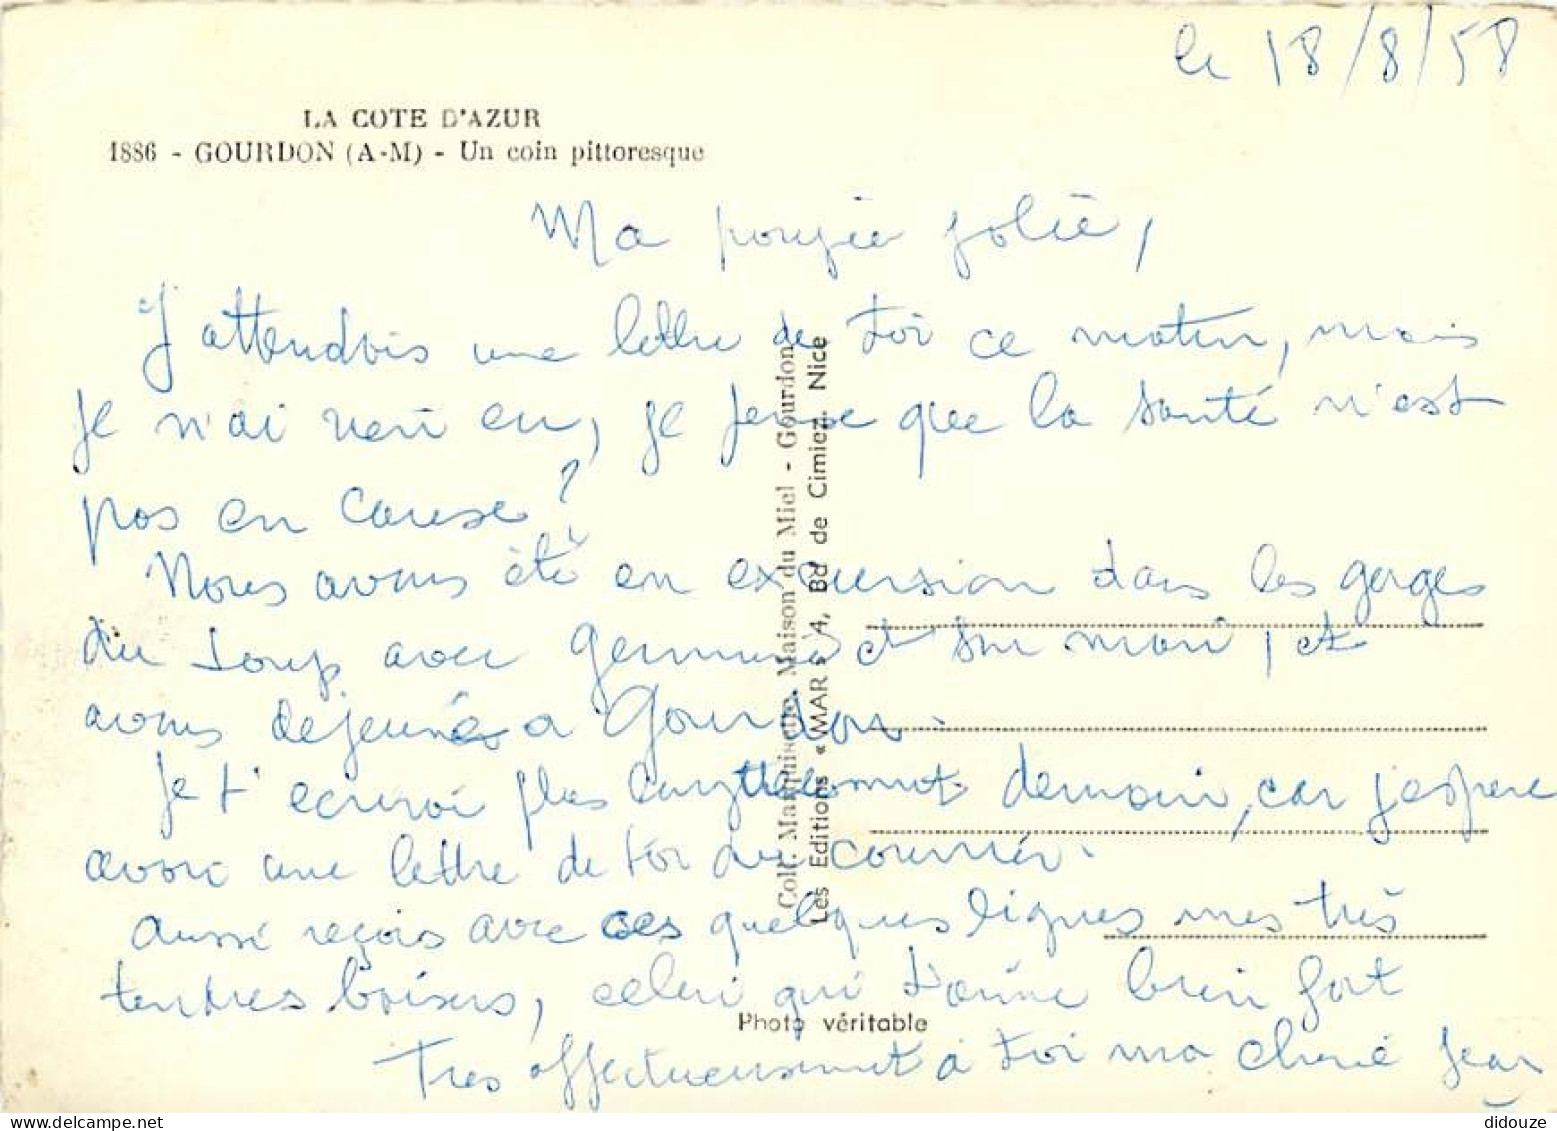 le 18/8/58
LA COTE D'AZUR
1886 - GOURDON (A-M) - Un coin pittoresque
Ma poupée jolie,
J'attendais une lettre de toi ce matin, mais
je n'ai rien eu, je pense que la santé n'est
pas en cause?
Nous avons été en excursion dans les gorges
du Loup avec Germaine et son mari, et
avons déjeuné a Gourdon.
Je t'ecrirai plus demain, car j'espere
avoir une lettre de toi au courrier.
Aussi reçois avec ces quelques lignes mes très
tendres baisers, celui qui t'aime bien fort
Très affectueusement à toi ma cherie Jean
Coll. Marquisette, Maison du Miel - Gourdon
Les Editions « MAR », 4, Bd de Cimiez. Nice
Photo véritable
didouze